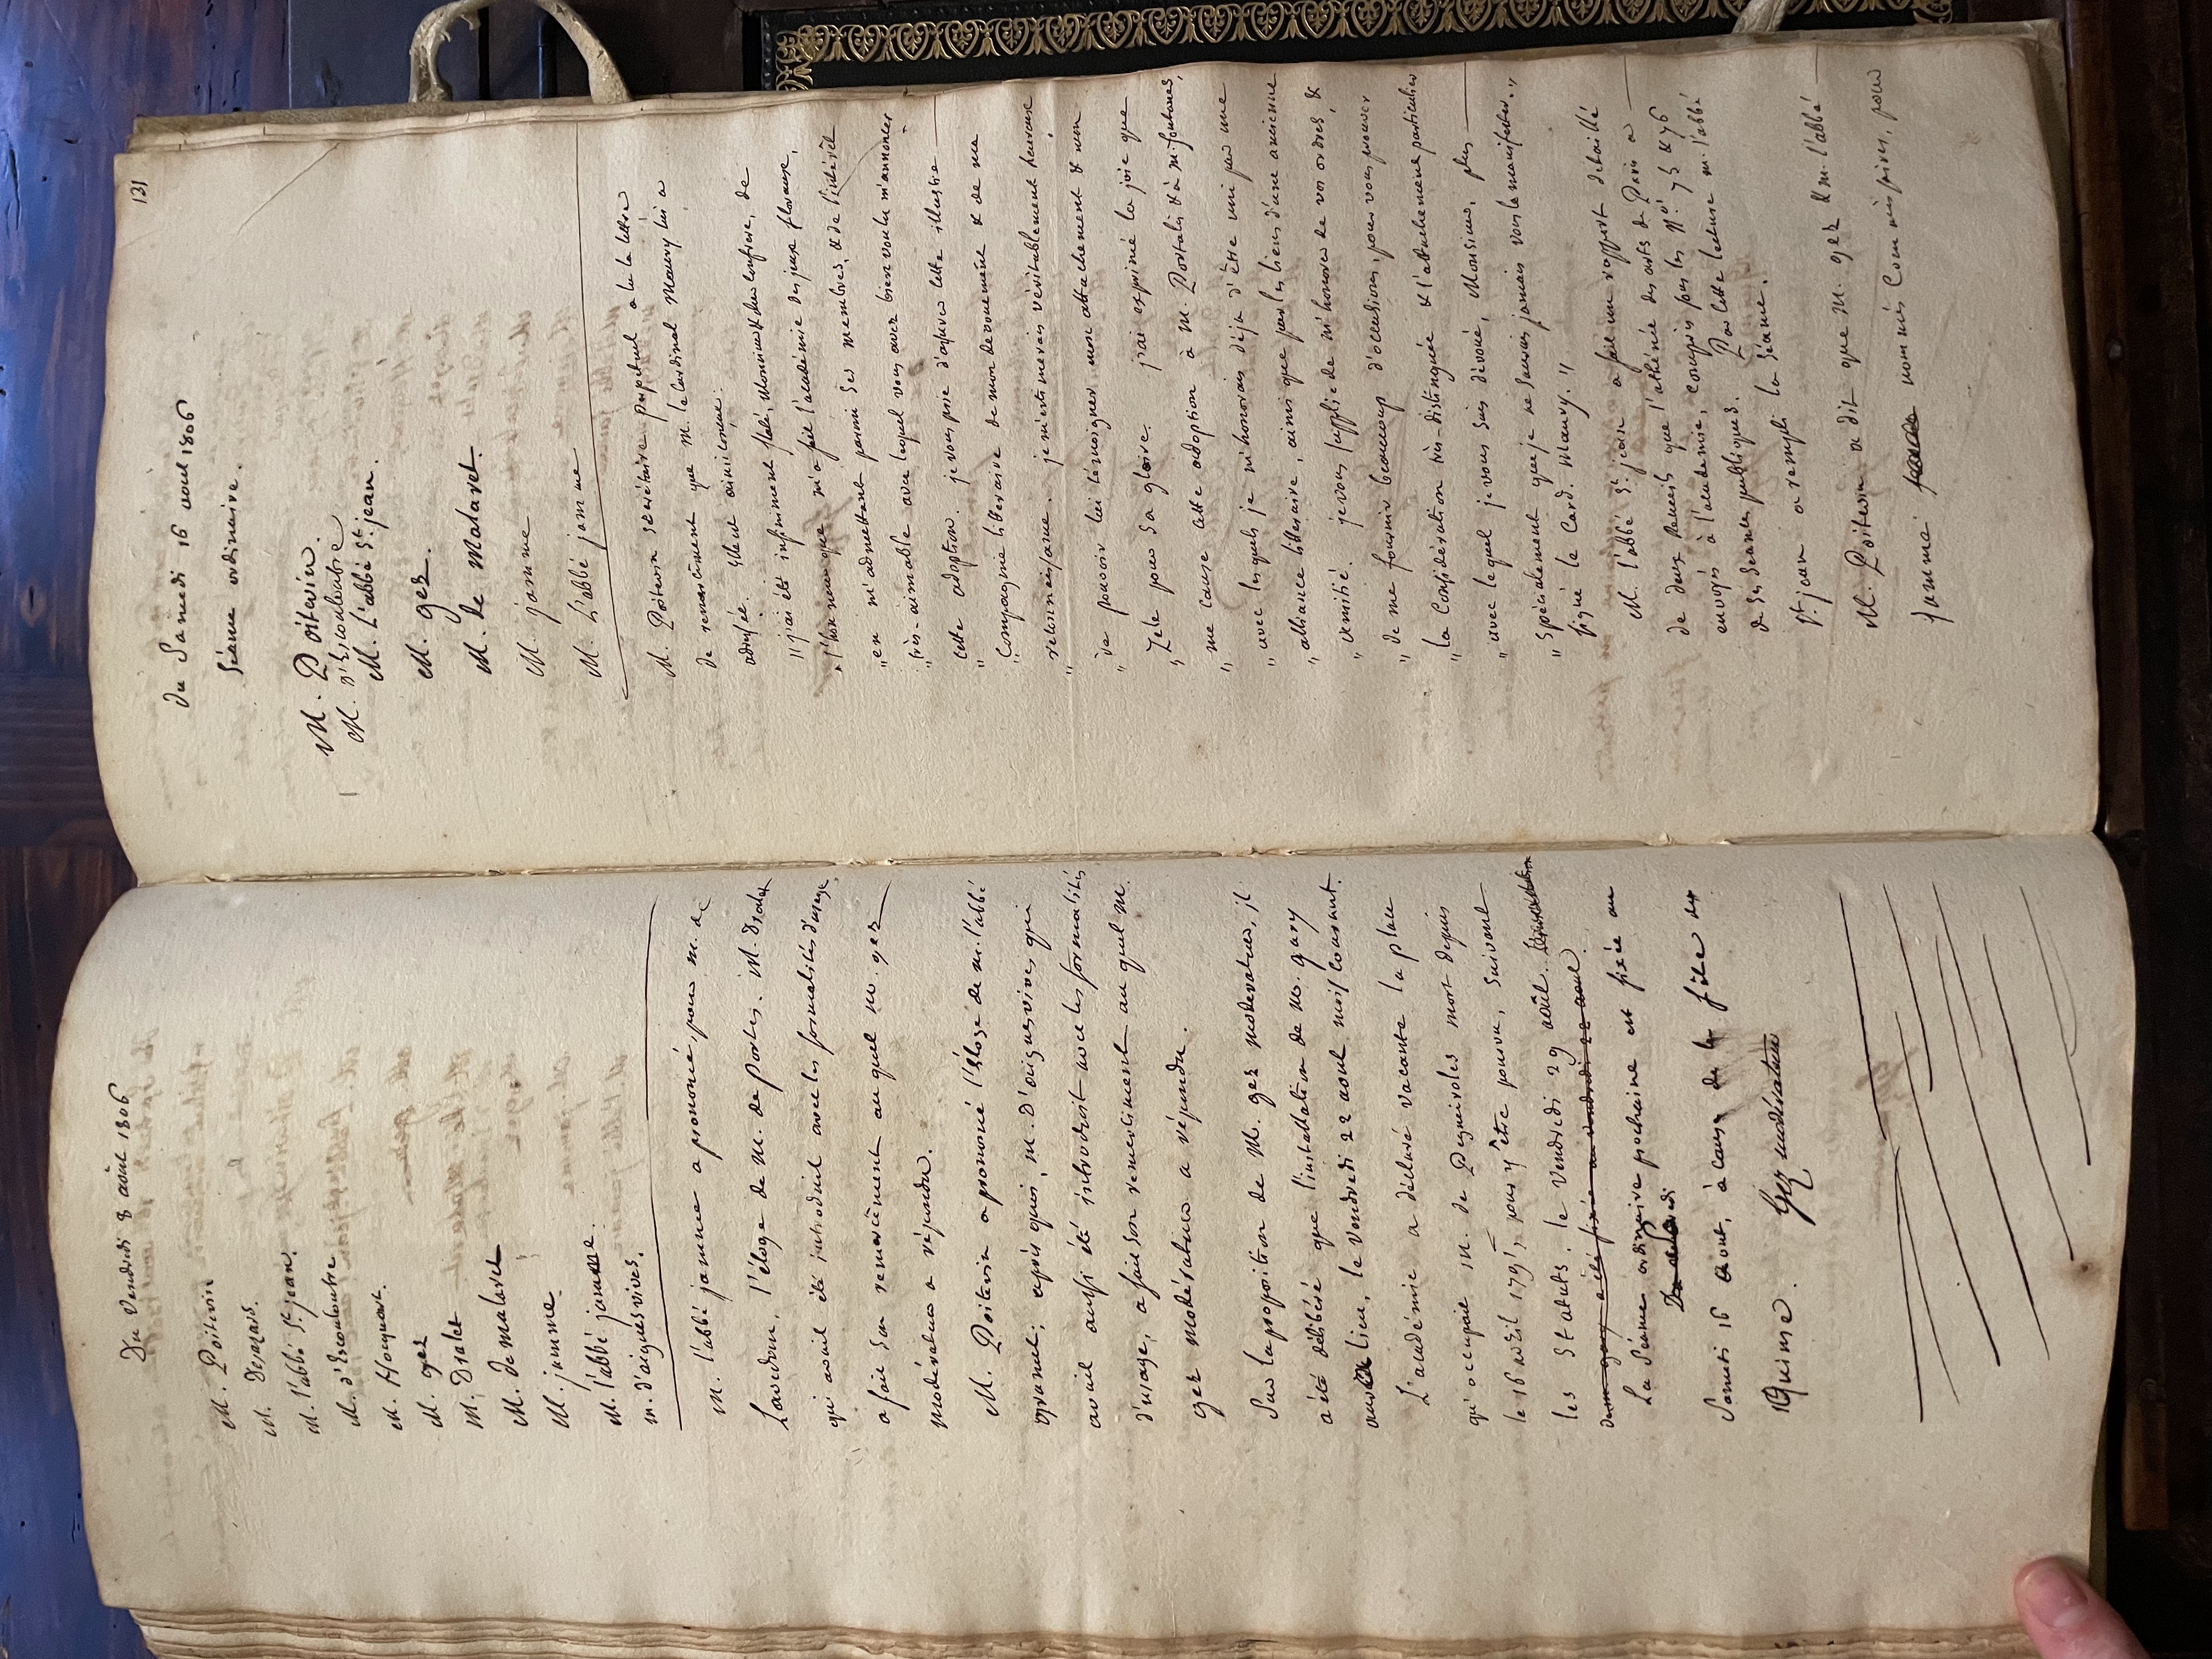 Du Vendredi 8 août 1806
M. Poitevin
M. Desazars.
M. l'abbé St. jean.
M. d'Escouloubre
M. Hocquart.
M. gez
M. Dralet
M. De Malaret
M. jamme.
M. l'abbé jamme.
M. d'aiguesvives.
M. l'abbé jamme a prononcé, pour M. de
Lavedan, l'éloge de M. de portes. M. Dralet
qui avait été introduit avec les formalités d'usage,
a fait son remerciment au quel M. gez
modérateur a répondu.
M. Poitevin a prononcé l'Eloge de M. l'abbé
après quoi, M. D'aiguesvives, qui
avait aussi été introduit avec les formalités
d'usage, a fait son remerciment au quel M.
gez modérateur a répondu.
Sur la proposition de M. gez modérateur, il
a été délibéré que l'installation de M. gary
aura lieu, le Vendredi 22 aout mois courant.
L'académie a déclaré vacante la place
qu'occupait M. de Pegueiroles mort depuis
le 16 avril 1795, pour y être pourvu, suivant
les Statuts. le Vendredi 29 août.
a été fixée au vendredi 22 aout.
La Séance ordinaire prochaine est fixée au
Samedi 16 aout, à cause de la fête du
15. Gez modérateur
131
du Samedi 16 aout 1806
Séance ordinaire.
M. Poitevin.
M. D'Escouloubre
M. L'abbé St. jean.
M. gez.
M. de Malaret.
M. jamme
M. L'abbé jamme
M. Poitevin secrétaire perpétuel a lu la lettre
de remerciment que M. le Cardinal Maury lui a
adressée. Elle est ainsi conçue:
"j'ai été infiniment flaté, Monsieur & cher Confrere, de
"l'honneur que m'a fait l'académie des jeux floraux,
"en m'admettant parmi ses membres, & de l'intérêt
"très-aimable avec lequel vous avez bien voulu m'annoncer
"cette adoption. je vous prie d'assurer cette illustre
"Compagnie litteraire de mon dévouement & de ma
"reconnaissance. je m'estimerais véritablement heureux
"de pouvoir lui témoigner mon attachement & mon
"Zèle pour sa gloire. j'ai exprimé la joie que
"me cause cette adoption à M. Portalis & à M. fontanes,
"avec lesquels je m'honorais déja d'être uni par une
"alliance litteraire, ainsi que par les liens d'une ancienne
"amitié. je vous supplie de m'honorer de vos ordres, &
"de me fournir beaucoup d'occasions, pour vous prouver
"la Considération très-distinguée & l'attachement particulier
"avec lequel je vous suis dévoué, Monsieur, plus
"spécialement que je ne saurais jamais vous le manifester."
signé le Card. Maury."
M. l'abbé St. jean a fait un rapport détaillé
de deux Recueils que l'athénée des arts de Paris a
envoyés à l'academie, compris sous les Nos. 75 & 76
de ses séances publiques. Par cette lecture M. l'abbé
St. jean a rempli la séance.
M. Poitevin a dit que M. gez & M. l'abbé
jamme nommés Commissaires, pour